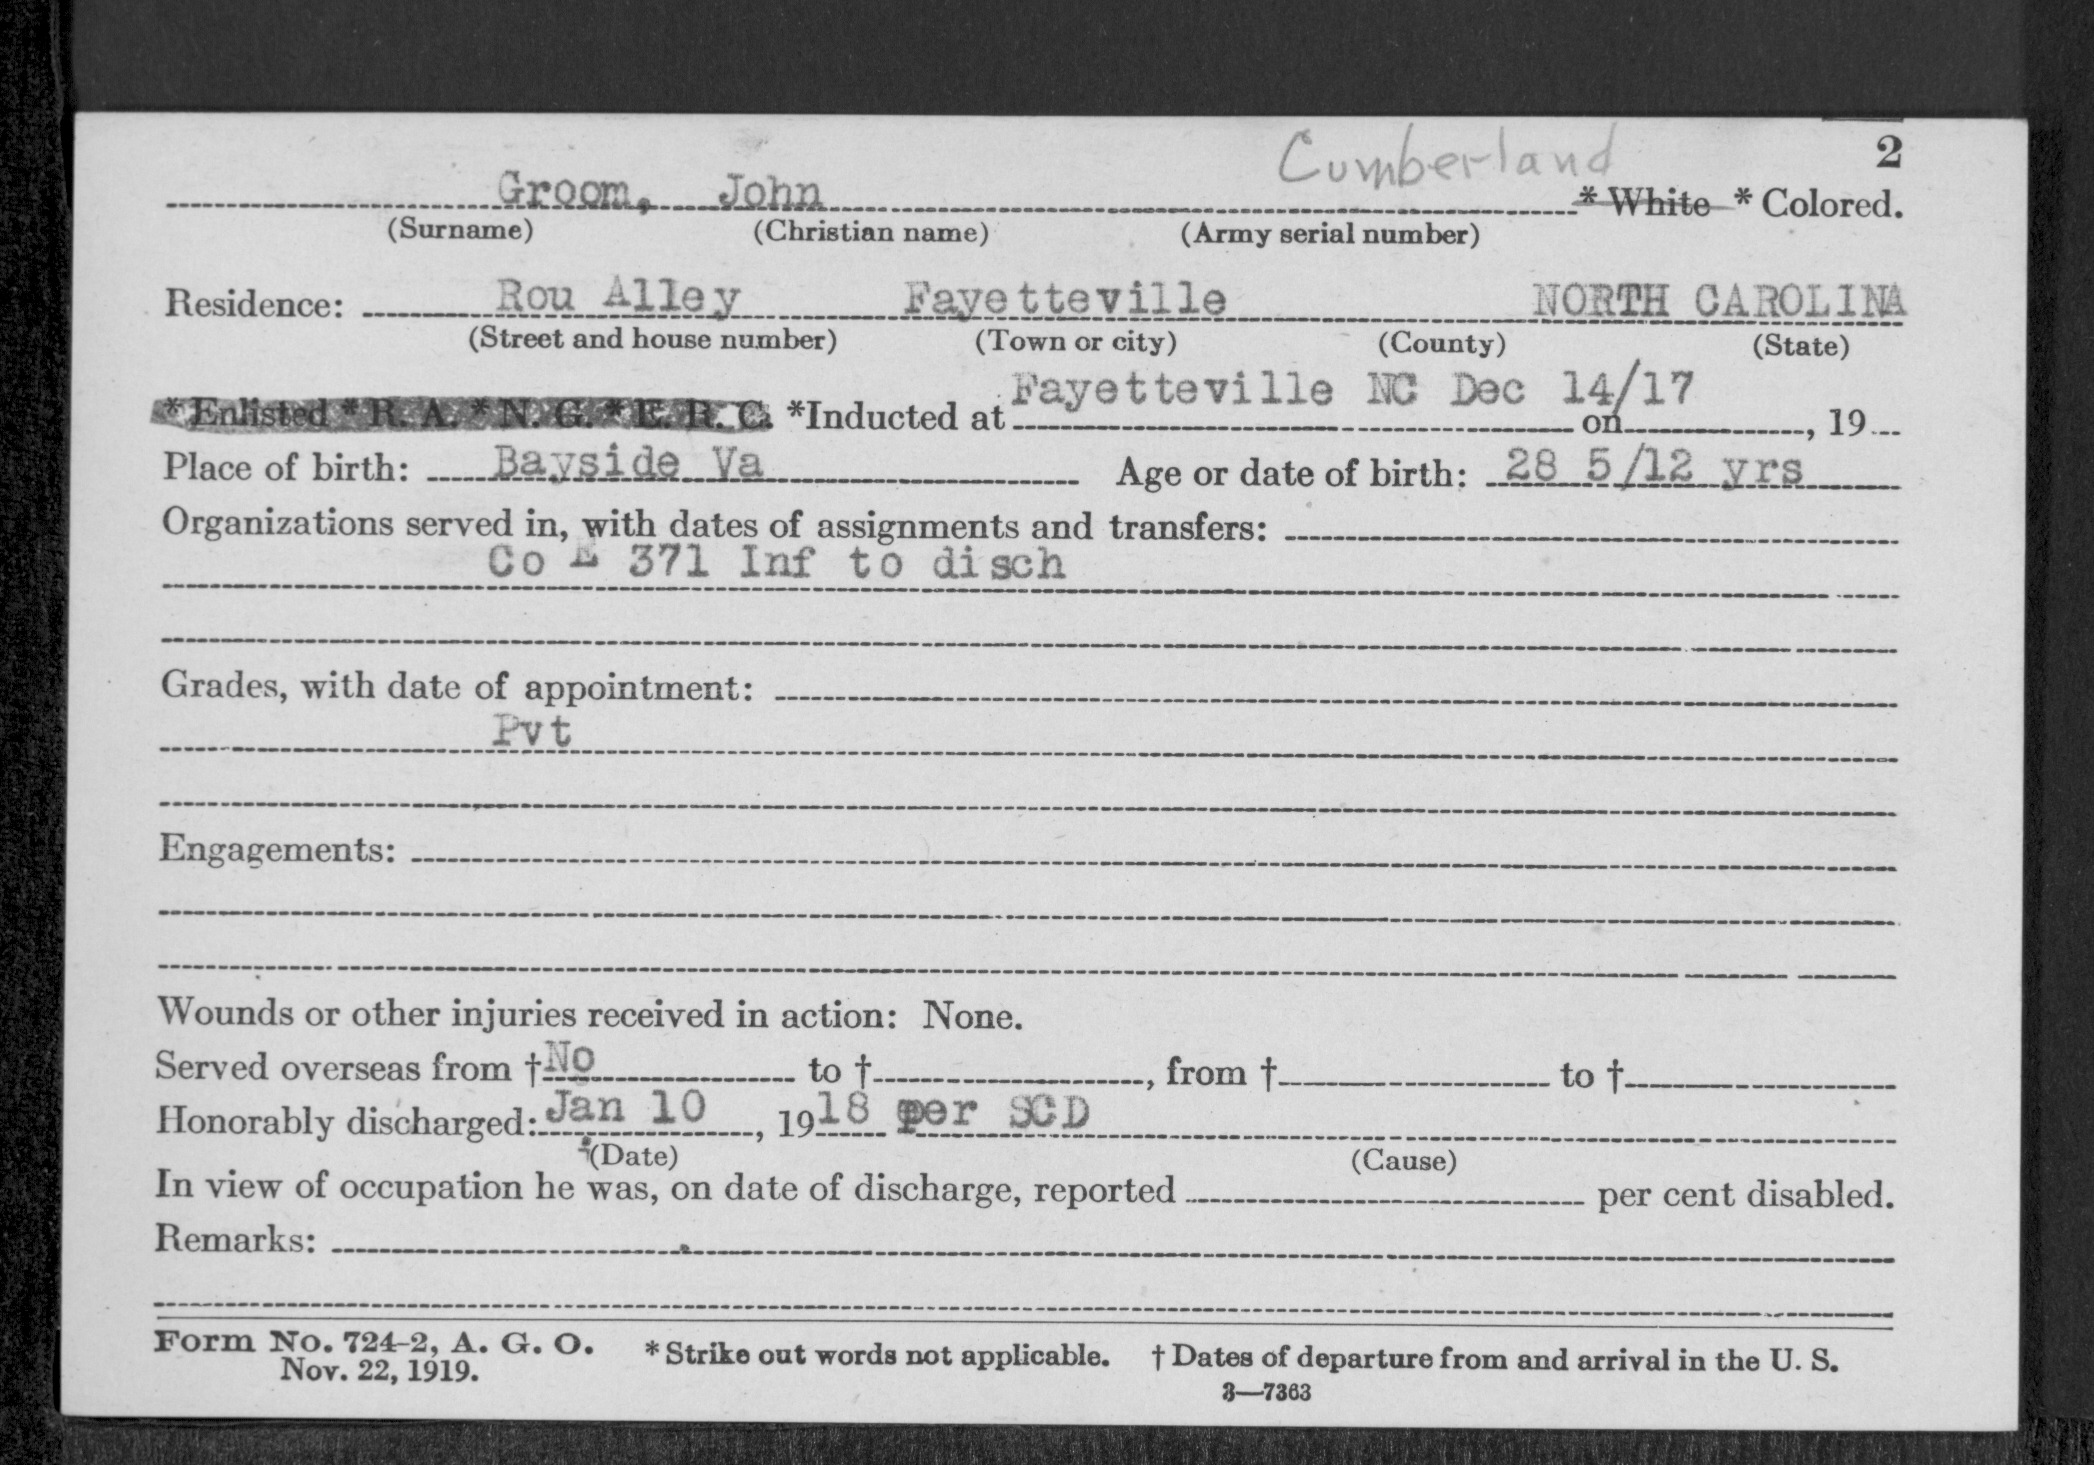 Cumberland
2
Groom, John * White * Colored.
(Surname) (Christian name) (Army serial number)
Residence: Rou Alley Fayetteville NORTH CAROLINA
(Street and house number) (Town or city) (County) (State)
* Enlisted * R. A. * N. G. * E. R. C. *Inducted at Fayetteville NC Dec 14/17 on , 19
Place of birth: Bayside Va Age or date of birth: 28 5/12 yrs
Organizations served in, with dates of assignments and transfers:
Co E 371 Inf to disch
Grades, with date of appointment:
Pvt
Engagements:
Wounds or other injuries received in action: None.
Served overseas from † No to † , from † to †
Honorably discharged: Jan 10 , 1918 per SCD
(Date) (Cause)
In view of occupation he was, on date of discharge, reported per cent disabled.
Remarks:
Form No. 724-2, A. G. O. * Strike out words not applicable. † Dates of departure from and arrival in the U. S.
Nov. 22, 1919.
3—7363